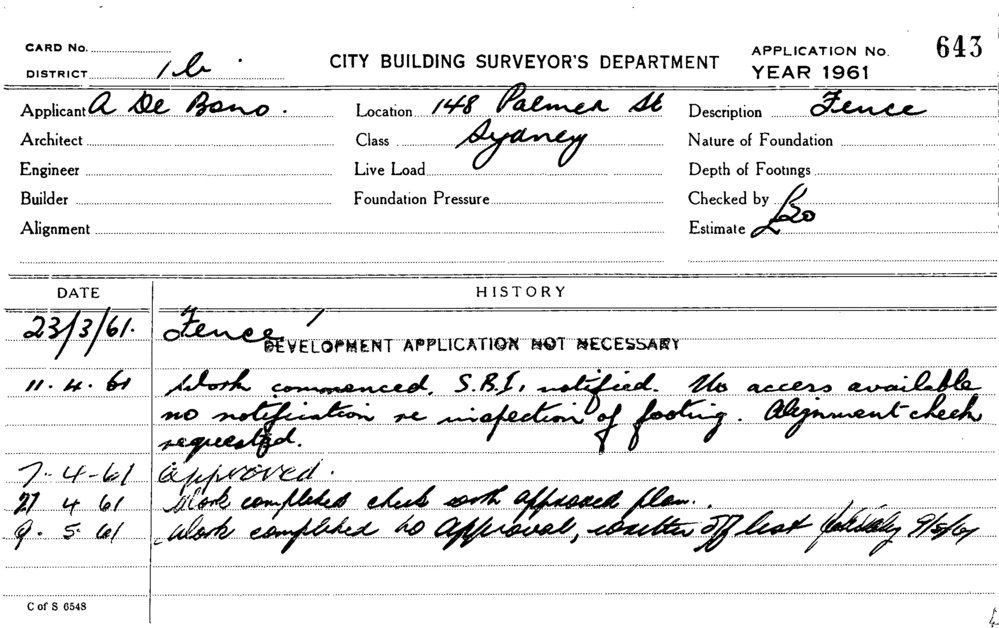 CARD No.
DISTRICT
CITY BUILDING SURVEYOR'S DEPARTMENT
APPLICATION No. 643
YEAR 1961
Applicant A De Bono.
Location 148 Palmer St
Description Fence
Architect
Class Sydney
Nature of Foundation
Engineer
Live Load
Depth of Footings
Builder
Foundation Pressure
Checked by
Alignment
Estimate £20
DATE
HISTORY
23/3/61. Fence
DEVELOPMENT APPLICATION NOT NECESSARY
11. 4. 61 Work commenced. S.B.I. notified. No access available
no notification re inspection of footing. Alignment check
requested.
7-4-61 approved.
27 4 61 Work completed check with approved plan.
9. 5. 61 Work completed to approval, written off list 9/5/61
C of S 6548